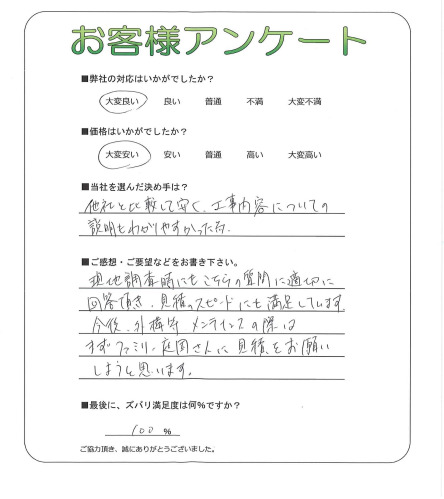 お客様アンケート
■弊社の対応はいかがでしたか?
大変良い 良い 普通 不満 大変不満
■価格はいかがでしたか?
大変安い 安い 普通 高い 大変高い
■当社を選んだ決め手は?
他社と比較して安く、工事内容についての
説明もわかりやすかった為。
■ご感想・ご要望などをお書き下さい。
現地調査時にもこちらの質問に適切に
回答頂き、見積のスピードにも満足しています。
今後、外構等 メンテナンスの際は
まずファミリー庭園さんに見積をお願い
しようと思います。
■最後に、ズバリ満足度は何%ですか?
100 %
ご協力頂き、誠にありがとうございました。